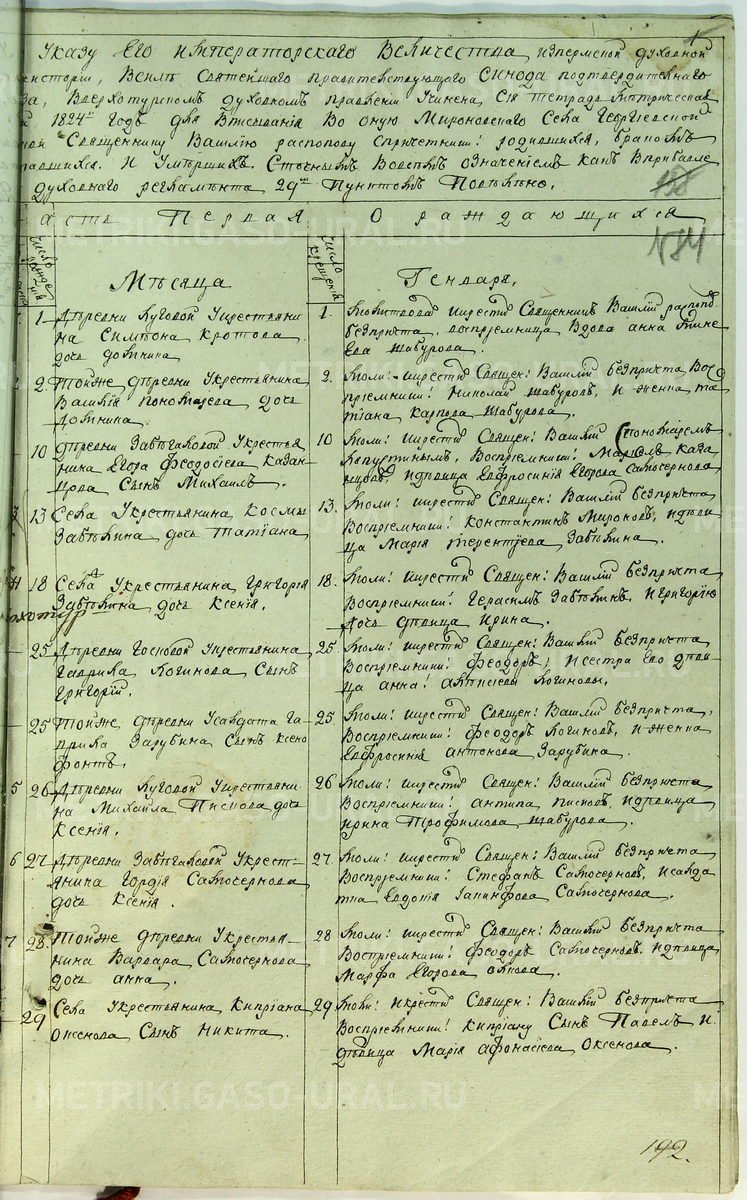 Указу Его императорскаго Величества, изпермской духовной
систоріи, ВСилѣ Святейшаго правительствующаго Синода подтвердительнаго
за, Вверхотурскомъ духовномъ правленіи Учинена, Сія тетрадь Метрическая
1824 Годъ для Вписыванія Во оную Мироновскаго Села Георгіевской
Священнику Василію распопову Спричетники! родившихся, браков
авшихся. И Умершихъ. Сточнымъ Вовсемъ означеніемъ какъ Вприбавле
духовнаго регламента 29 Пунктомъ Повелѣно.
138
184
асть Первая О раждающихся
число рожденія
число крещенія
Мѣсяца Генваря.
1 Деревни Луговой Укрестьяни
на Симеона Кротова
дочь домнина
1. Молитвовалъ икрестилъ Священникъ Василій распопо
безпричта. воспріемница Вдова анна
ева шабурова.
2. Тойже деревни Укрестьянина
Василія пономарева дочь
Домнина.
2. Моли: икрестилъ Священ: Василій безпричта Вос
пріемники! Николай шабуровъ, И женка та
тіана карпова шабурова.
10 Деревни Забѣгаловой Укрестья
нина Егора Феодосіева казан
цова Сынъ Михаилъ.
10 Моли: икрестилъ Священ: Василій Спономаремъ
капустинымъ, Воспріемники! каза
нцовъ, идѣвица Евфросинія Егорова Самочернова
3 13 Села Укрестьянина космы
Забѣлина дочь татіана
13. Моли! икрестилъ Священ: Василій безпричта
Воспріемники! константинъ Мироновъ, идѣви
ца Марія терентіева Забѣлина.
4 18 Села Укрестьянина Григорія
Забѣлина дочь Ксенія.
18. Моли! икрестилъ Священ! Василій безпричта
Воспріемники! Герасимъ Забѣлинъ, иГригорію
дочь дѣвица ирина.
25 Деревни Госьковой Укрестьянина
Гаврила Логинова Сынъ
Григорій.
25 Моли! икрестилъ Священ! Василій безпричта
Воспріемники! Феодоръ, исестра Его дѣви
ца анна! Логиновы.
25 Тойже деревни Усалдата Га
врила Зарубина Сынъ ксено
фонтъ.
25 Моли! икрестилъ Священ! Василій безпричта,
Воспріемники! Феодоръ Логиновъ, иженка
Евфросинія антонова Зарубина.
5 26 Деревни Луговой Укрестьяни
на Михаила Пискова дочь
Ксенія.
26 Моли! икрестилъ Священ! Василій безпричта
Воспріемники! антипа писковъ, идѣвица
ирина Трофимова шабурова.
6 27 Деревни Забѣгаловой Укрест-
янина Гордія Самочернова
дочь Ксенія.
27. Моли! икрестилъ Священ! Василій безпричта
Воспріемники! Стефанъ Самочерновъ, исалда
тка Евдокія Іакинфова Самочернова.
7 28 Тойже деревни Укрестья-
нина Варвара Самочернова
дочь анна.
28 Моли! икрестилъ Священ! Василій безпричта
Воспріемники! Феодоръ Самочерновъ, идѣвица
Марфа Егорова
29 Села Укрестьянина Кипріана
Оксенова Сынъ Никита.
29 Моли! Икрестилъ Священ: Василій безпричта
Воспріемники! Кипріану Сынъ Павелъ И
дѣвица Марія афонасіева Оксенова.
192.
METRIKI.GASO-URAL.RU